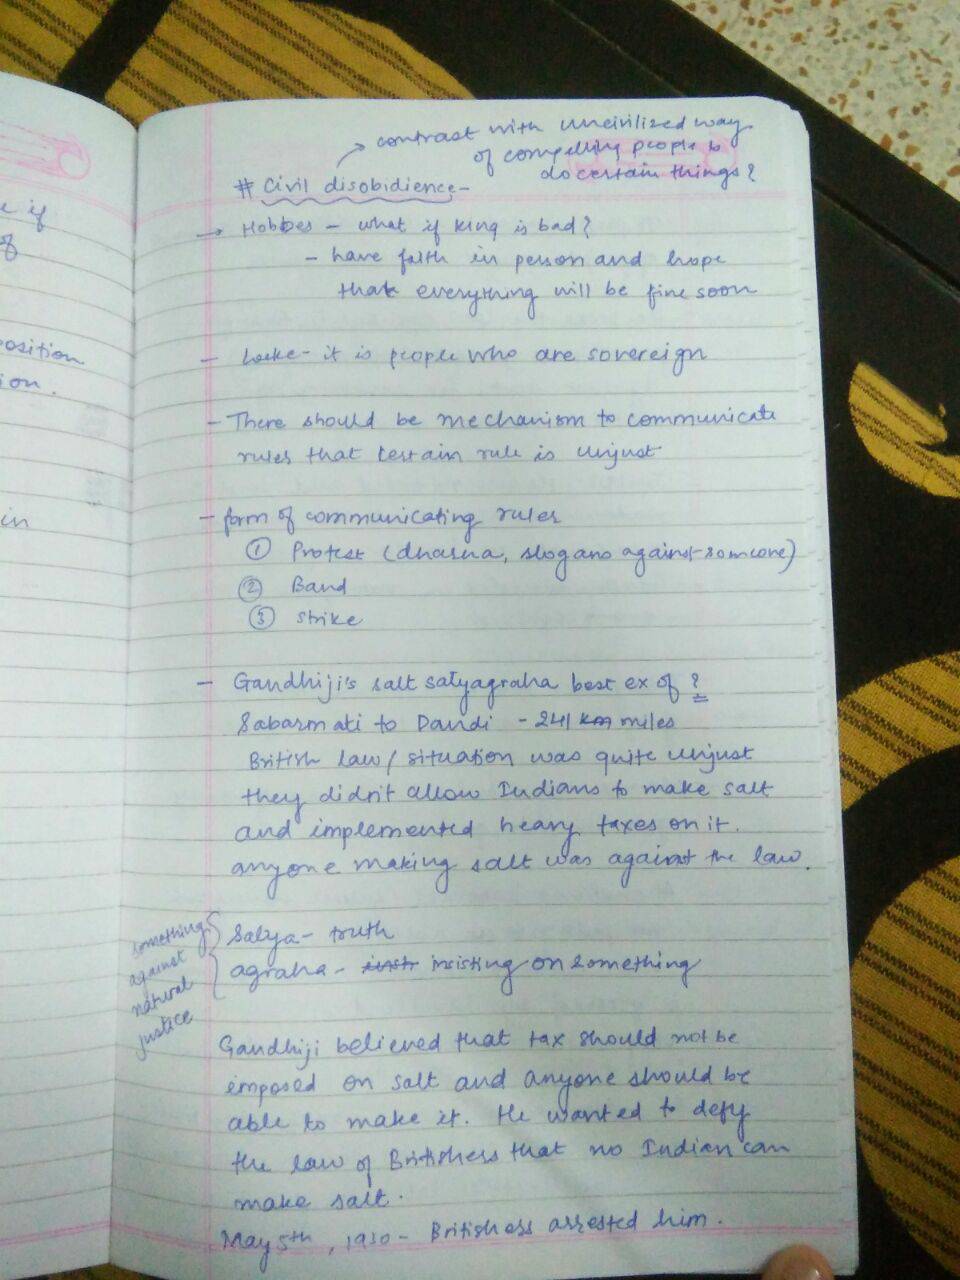 contrast with uncivilized way
of compelling people to
do certain things?
# Civil disobidience-
→ Hobbes - what if king is bad?
- have faith in person and hope
that everything will be fine soon
- Locke - it is people who are sovereign
- There should be mechanism to communicate
rules that certain rule is unjust
- form of communicating rules
① Protest (dharna, slogans against someone)
② Band
③ strike
- Gandhiji's salt satyagraha best ex of ?
Sabarmati to Dandi - 241 km miles
British law / situation was quite unjust
they didn't allow Indians to make salt
and implemented heavy taxes on it.
anyone making salt was against the law.
Satya - truth
agraha - insisting on something
something
against
natural
justice
Gandhiji believed that tax should not be
imposed on salt and anyone should be
able to make it. He wanted to defy
the law of Britishers that no Indian can
make salt.
May 5th, 1930 - Britishers arrested him.
e if
of
position
ion.
in